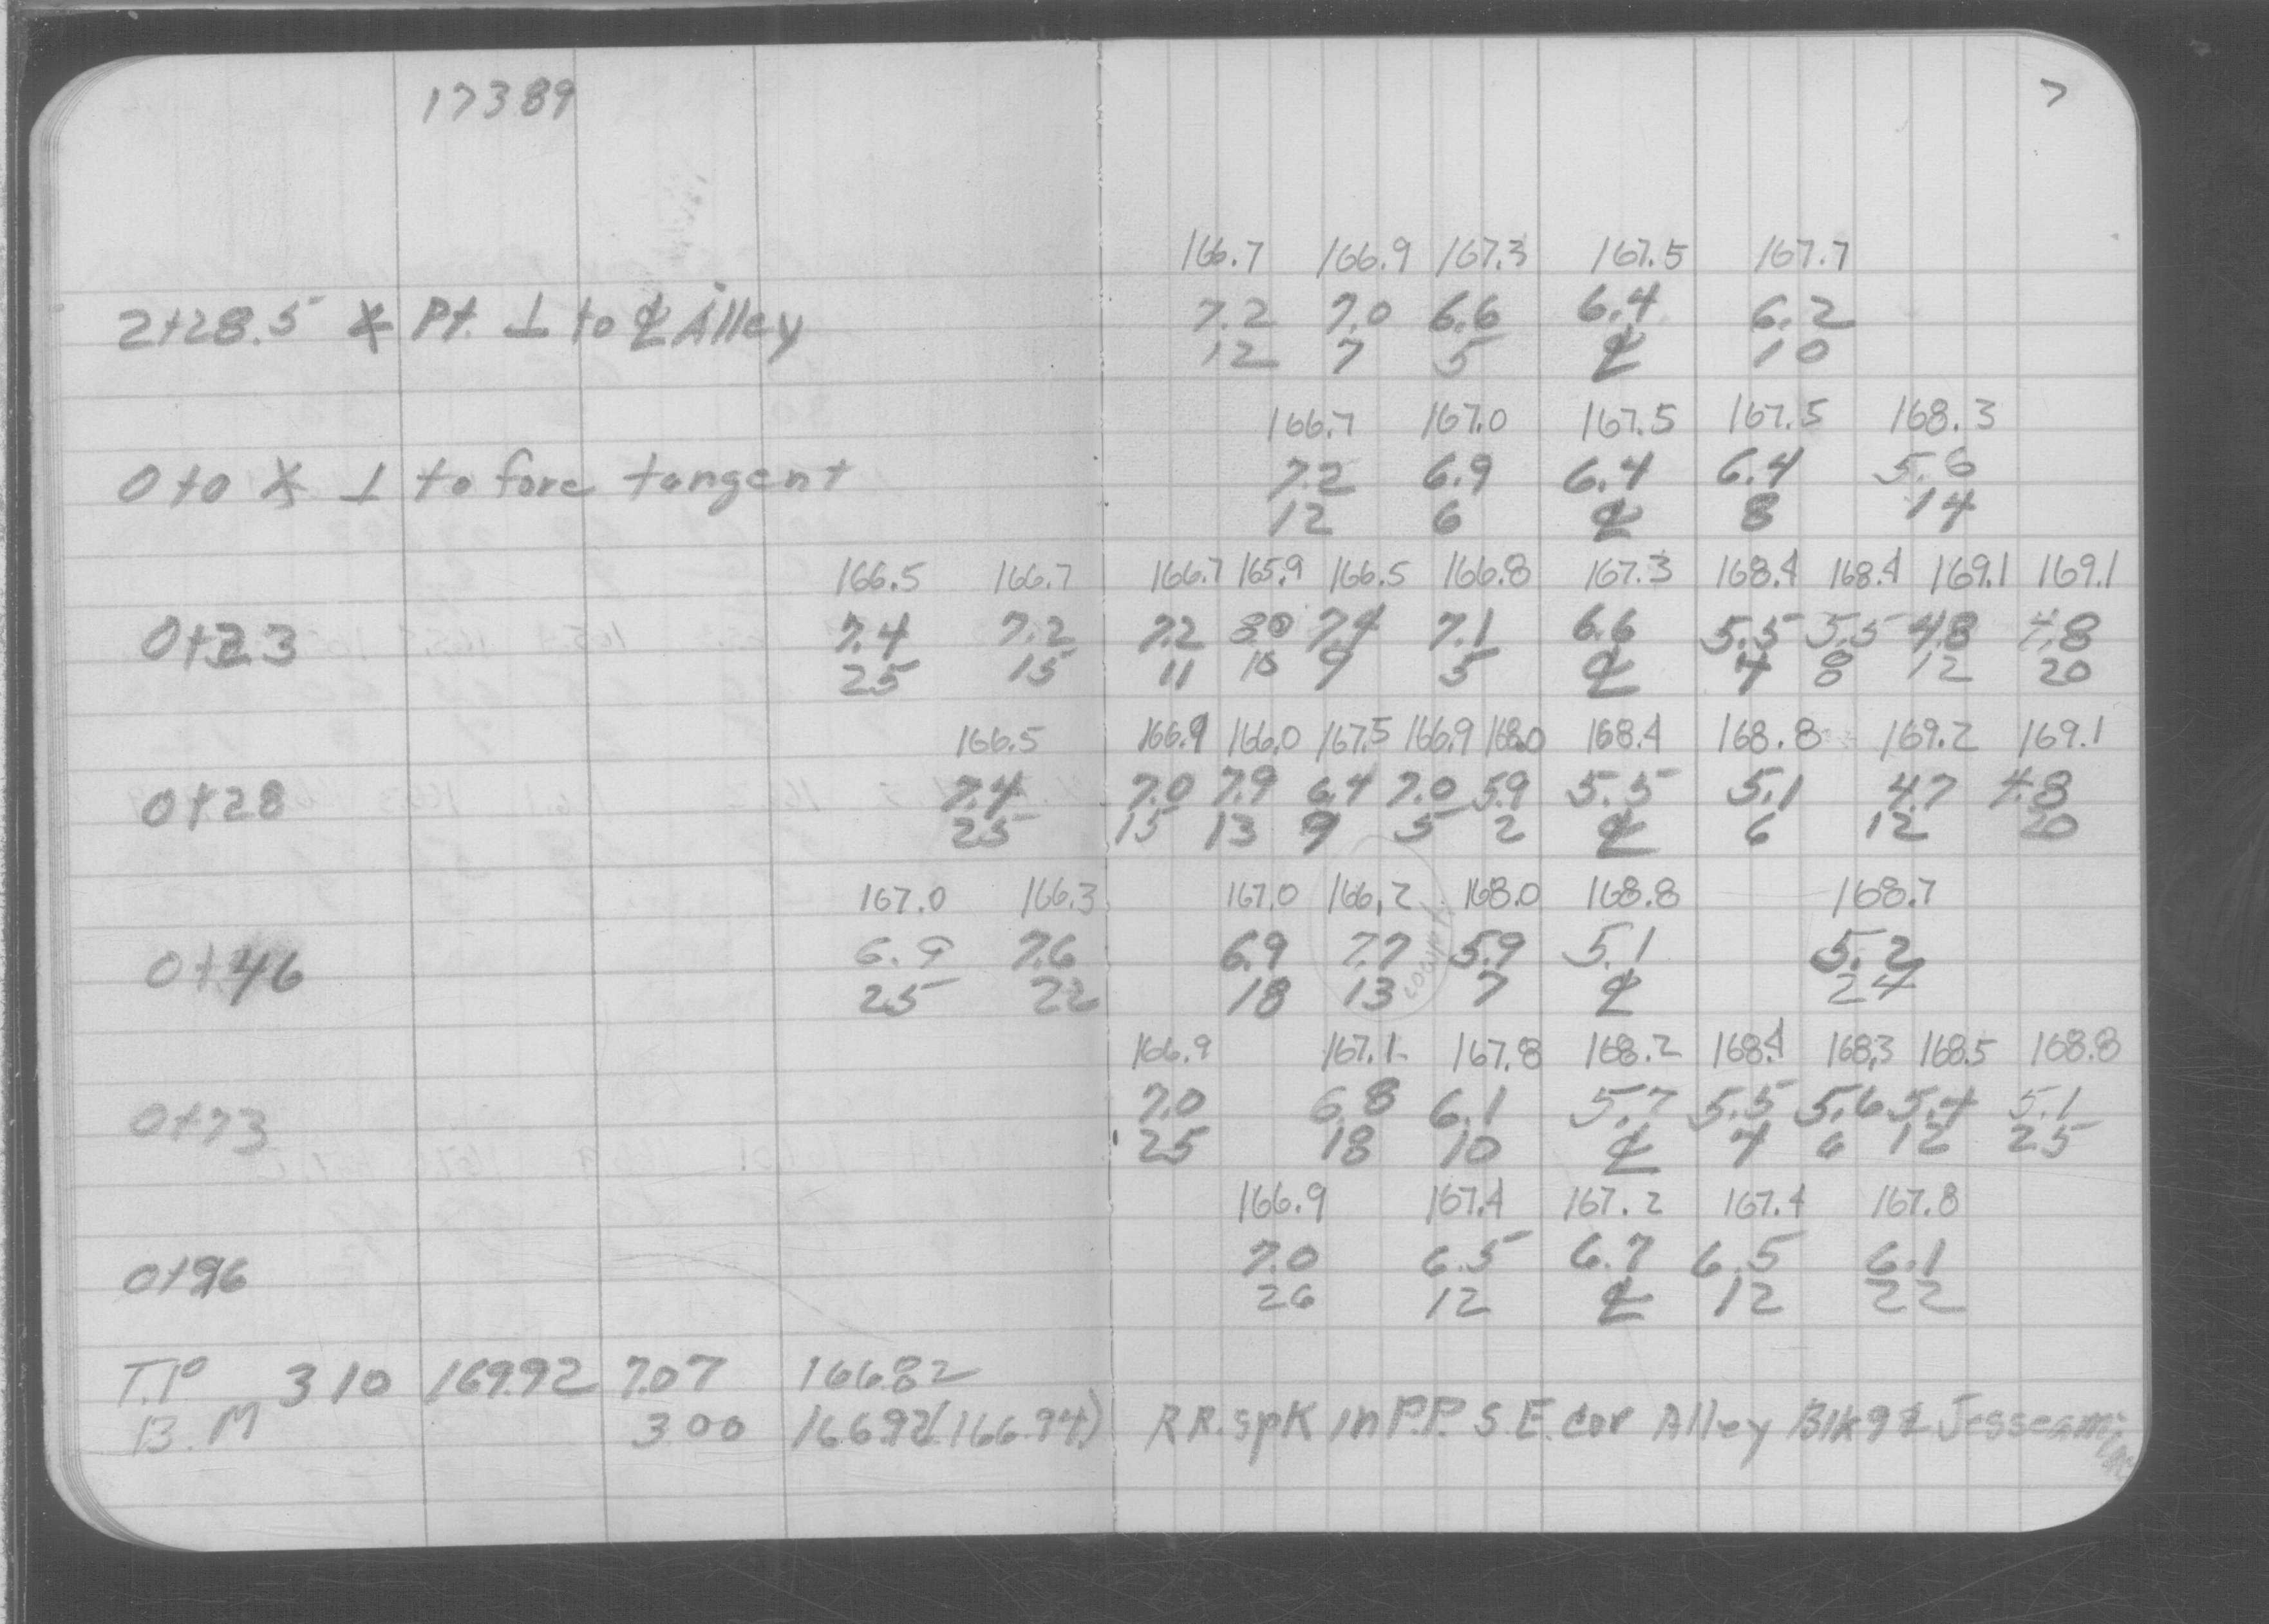 17389 7
166.7 166.9 167.3 167.5 167.7
2+28.5 ⊼ Pt. ⊥ to ℄ Alley 7.2 7.0 6.6 6.4 6.2
12 7 5 ℄ 10
166.7 167.0 167.5 167.5 168.3
0+0 ⊼ ⊥ to fore tangent 7.2 6.9 6.4 6.4 5.6
12 6 ℄ 8 14
166.5 166.7 166.7 165.9 166.5 166.8 167.3 168.4 168.4 169.1 169.1
0+23 7.4 7.2 7.2 8.0 7.4 7.1 6.6 5.5 5.5 4.8 4.8
25 15 11 10 9 5 ℄ 4 8 12 20
166.5 166.9 166.0 167.5 166.9 168.0 168.4 168.8 169.2 169.1
0+28 7.4 7.0 7.9 6.4 7.0 5.9 5.5 5.1 4.7 4.8
25 15 13 9 5 2 ℄ 6 12 20
167.0 166.3 167.0 166.2 168.0 168.8 168.7
0+46 6.9 7.6 6.9 7.7 5.9 5.1 5.2
25 22 18 13 7 ℄ 24
166.9 167.1 167.8 168.2 168.4 168.3 168.5 168.8
0+73 7.0 6.8 6.1 5.7 5.5 5.6 5.4 5.1
25 18 10 ℄ 4 6 12 25
166.9 167.4 167.2 167.4 167.8
0+96 7.0 6.5 6.7 6.5 6.1
26 12 ℄ 12 22
T.P. 310 169.92 7.07 166.82
B.M 300 166.92 (166.94) R R. Spk in P.P. S.E. cor Alley Blk 92 Jessamine